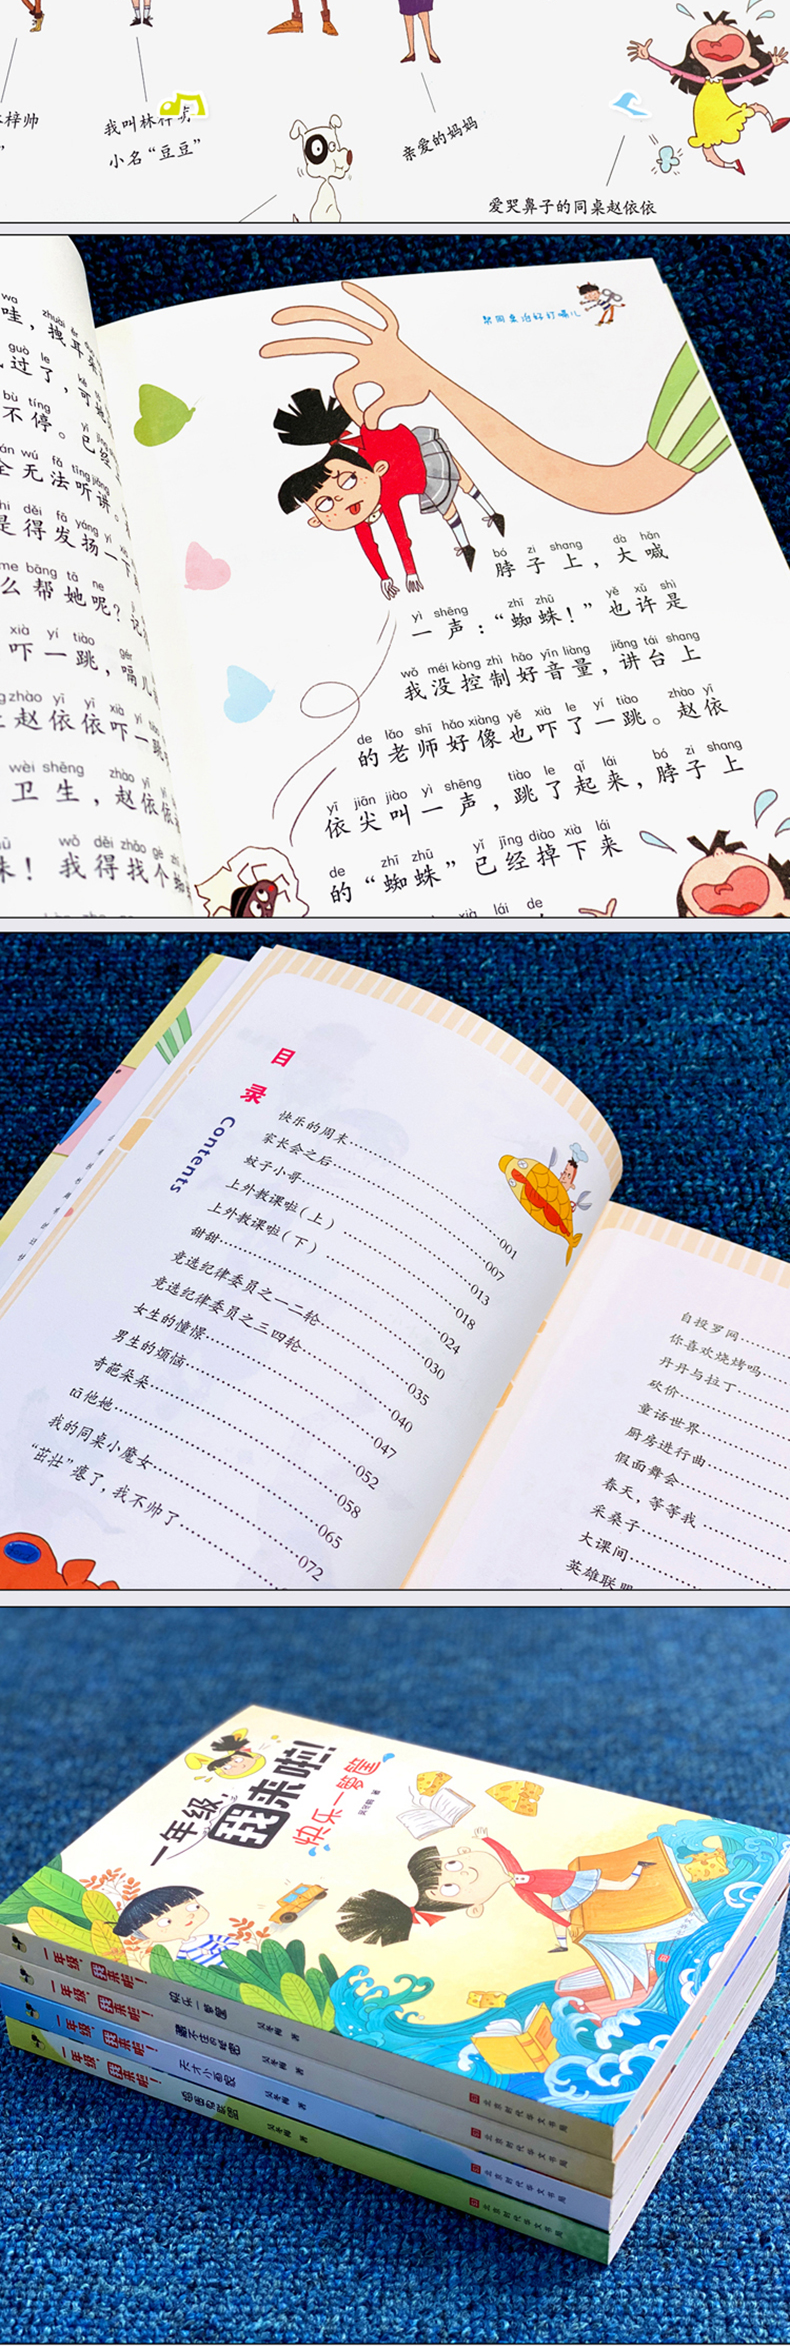 梓帅
我叫林梓
小名“豆豆”
亲爱的妈妈
爱哭鼻子的同桌赵依依
wa
哇，拽耳朵
guò le
过了，可
bù tíng
不停。已经
wú fǎ tīng jiǎng
全无法听讲。
děi fā yáng yí xià
是得发扬一下
me bāng tā ne
么帮她呢？记
xià yí tiào
吓一跳，嗝儿
zhào yī yī xià
赵依依吓一跳
wèi shēng zhào yī
卫生，赵依依
wǒ děi zhǎo gè
蛛！我得找个蜘
帮同桌治好打嗝儿
bó zi shang dà hǎn
脖子上，大喊
yì shēng zhī zhū yě xǔ shì
一声：“蜘蛛！”也许是
wǒ méi kòng zhì hǎo yīn liàng jiǎng tái shang
我没控制好音量，讲台上
de lǎo shī hǎo xiàng yě xià le yí tiào zhào yī
的老师好像也吓了一跳。赵依
yī jiān jiào yì shēng tiào le qǐ lái bó zi shang
依尖叫一声，跳了起来，脖子上
de zhī zhū yǐ jīng diào xià lái
的“蜘蛛”已经掉下来
xià lái de
目录
Contents
快乐的周末……001
家长会之后……007
蚊子小哥……013
上外教课啦（上）……018
上外教课啦（下）……024
甜甜……030
竞选纪律委员之一二轮……035
竞选纪律委员之三四轮……040
女生的憧憬……047
男生的烦恼……052
奇葩朵朵……058
tā他她……065
我的同桌小魔女……072
“茁壮”瘪了，我不帅了……
自投罗网……
你喜欢烧烤吗……
丹丹与拉丁……
砍价……
童话世界……
厨房进行曲……
假面舞会……
春天，等等我……
采桑子……
大课间……
英雄联盟
一年级，我来啦！
快乐一箩筐
吴冬梅 著
一年级，我来啦！ 快乐一箩筐 吴冬梅 著 北京时代华文书局
一年级，我来啦！ 藏不住的秘密 吴冬梅 著 北京时代华文书局
一年级，我来啦！ 天才小画家 吴冬梅 著 北京时代华文书局
一年级，我来啦！ 吴冬梅 著 北京时代华文书局